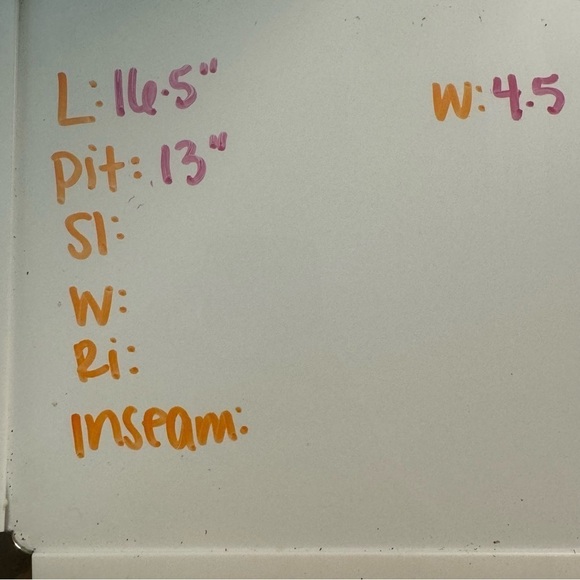 L: 16.5"
W: 4.5
pit: 13"
Sl:
W:
Ri:
Inseam: